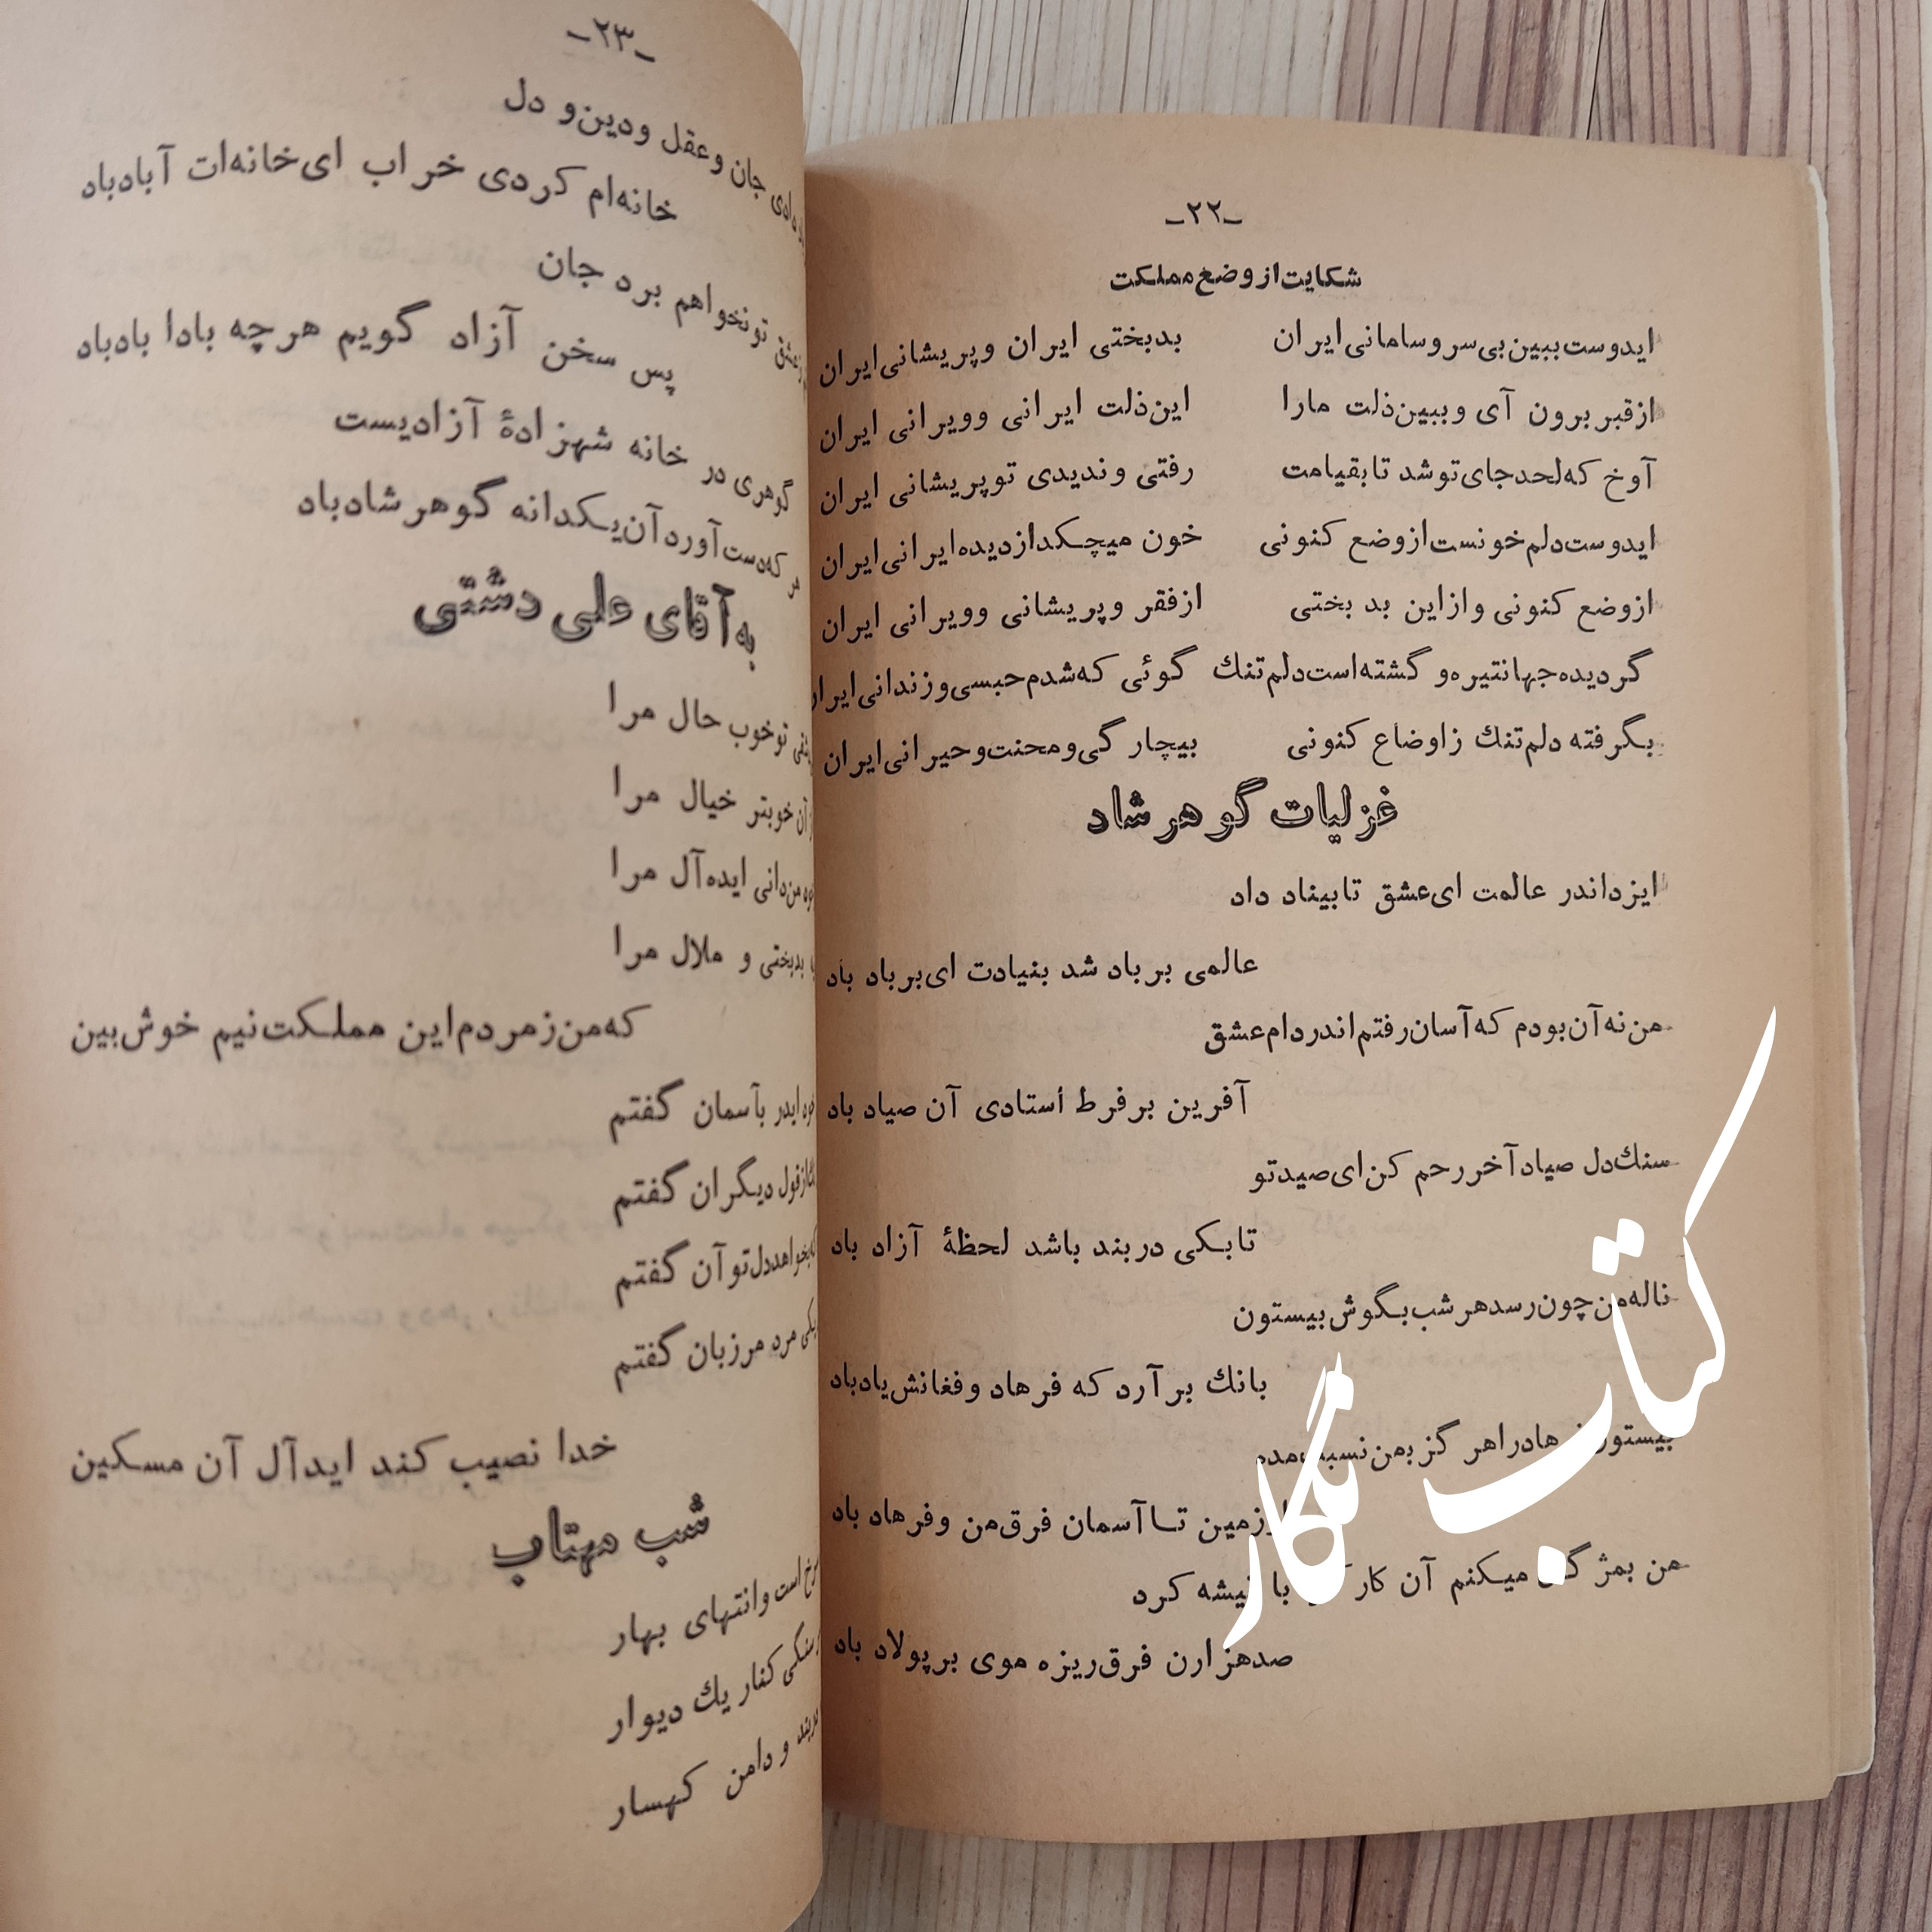 -۲۲-
شکایت از وضع مملکت
ایدوست ببین بی سر و سامانی ایران بدبختی ایران و پریشانی ایران
از قبر برون آی و ببین ذلت مارا این ذلت ایرانی و ویرانی ایران
آوخ که لحد جای تو شد تا بقیامت رفتی و ندیدی تو پریشانی ایران
ایدوست دلم خونست از وضع کنونی خون میچکد از دیده ایرانی ایران
از وضع کنونی و از این بد بختی از فقر و پریشانی و ویرانی ایران
گردیده جهانتیره و گشته است دلم تنك گوئی که شدم حبسی و زندانی ایران
بگرفته دلم تنك ز اوضاع کنونی بیچارگی و محنت و حیرانی ایران
غزلیات گوهرشاد
ایزد اندر عالمت ای عشق تا بیناد داد
عالمی بر باد شد بنیادت ای بر باد باد
من نه آن بودم که آسان رفتم اندر دام عشق
آفرین بر فرط أستادی آن صیاد باد
سنك دل صیاد آخر رحم کن ای صید تو
تا بکی در بند باشد لحظهٔ آزاد باد
ناله من چون رسد هر شب بگوش بیستون
بانك بر آرد که فرهاد و فغانش یاد باد
بیستون هادرا هر گز بمن نسبت مده
زمین تا آسمان فرق من و فرهاد باد
من بمژ میکنم آن کار با تیشه کرد
صدهزارن فرق ریزه موی بر پولاد باد
کتاب نگار
-۲۳-
جان و عقل و دین و دل
خانه‌ام کردی خراب ای خانه‌ات آباد باد
تو نخواهم برد جان
پس سخن آزاد گویم هرچه بادا باد باد
گوهری در خانه شهزادهٔ آزادیست
هر که دست آورد آن یکدانه گوهرشاد باد
به آقای علی دشتی
تو خوب حال مرا
آن خوبتر خیال مرا
من دانی ایده آل مرا
بدبختی و ملال مرا
که من ز مردم این مملکت نیم خوش بین
بآسمان گفتم
از قول دیگران گفتم
بخواهد دل تو آن گفتم
یکی مرد مرزبان گفتم
خدا نصیب کند ایدآل آن مسکین
شب مهتاب
است و انتهای بهار
سنگی کنار یك دیوار
و دامن کهسار